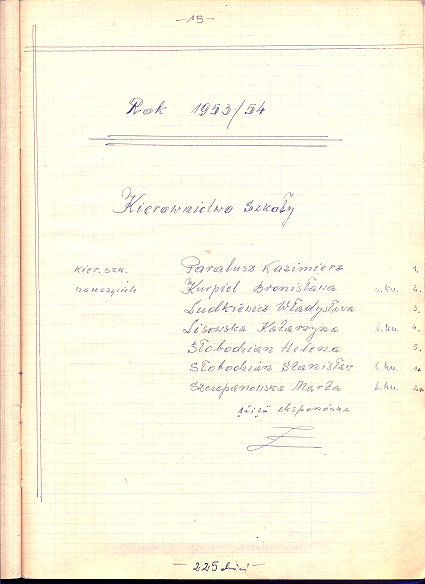 -15-
Rok 1953/54
Kierownictwo Szkoły
kier. szk. Parabusz Kazimierz 1.
nauczyciele Kurpiel Bronisława 2.
Ludkiewicz Władysława 3.
Lisowska Katarzyna 4.
Słobodzian Helena 5.
Słobodzian Stanisław
Szczepanowska Maria
- 225 dni -